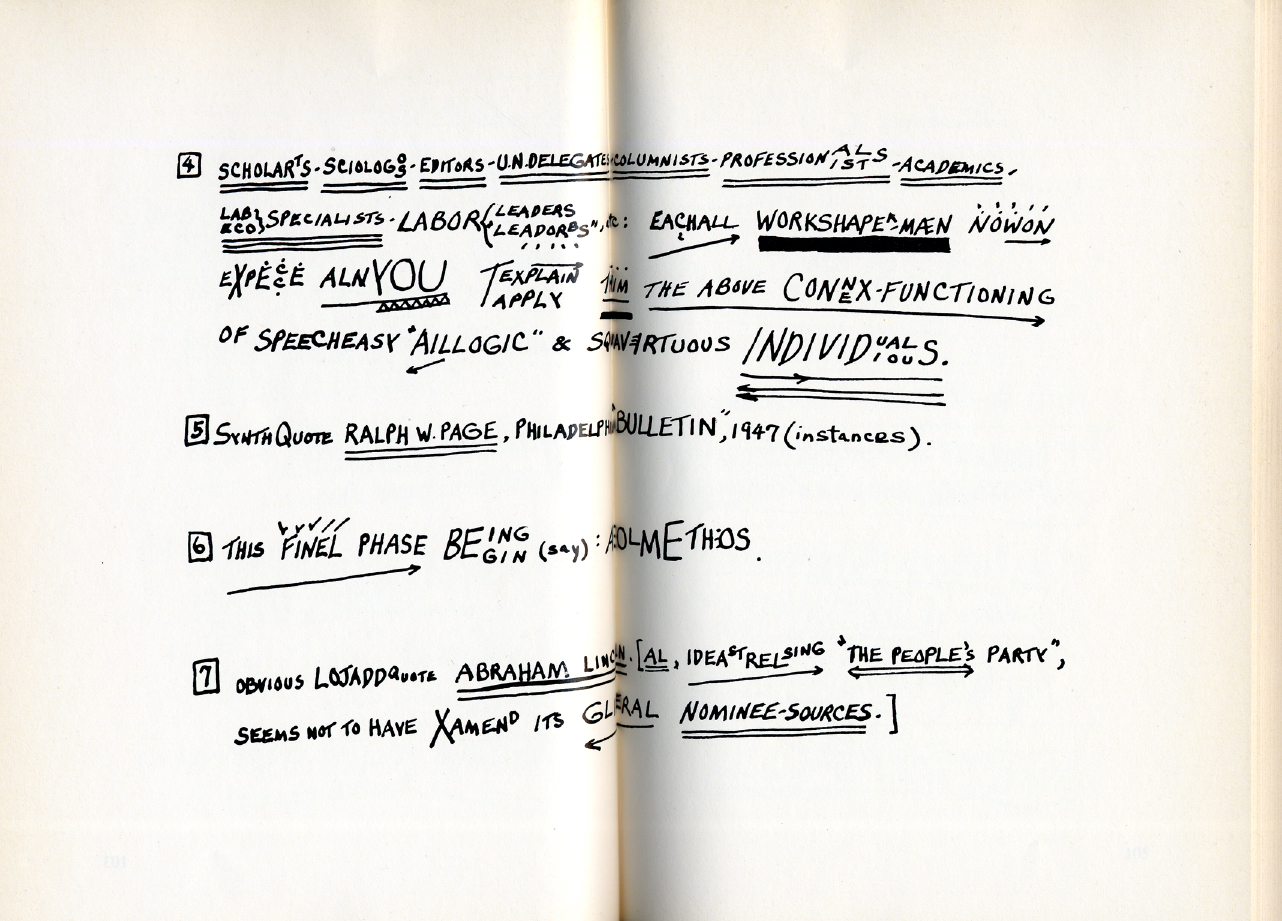 4 SCHOLARTS-SCIOLOGOS-EDITORS-U.N.DELEGATES-COLUMNISTS-PROFESSIONALISTS-ACADEMICS,
LAB ECO}SPECIALISTS-LABOR{LEADERS LEADORES", etc: EACHALL WORKSHAPERMÆN NOWON
ALNYOU T EXPLAIN APPLY THE ABOVE CONNEX-FUNCTIONING
OF SPEECHEASY "AILLOGIC" & INDIVIDUALIOUS.
5 SYNTHQUOTE RALPH W. PAGE, PHILADELPHIA "BULLETIN", 1947 (instances).
6 THIS FINEL PHASE BEING GIN (say):
7 OBVIOUS LOJADDQUOTE ABRAHAM LINCOLN. [AL, IDEASTRELSING "THE PEOPLE'S PARTY",
SEEMS NOT TO HAVE XAMEND ITS NOMINEE-SOURCES.]